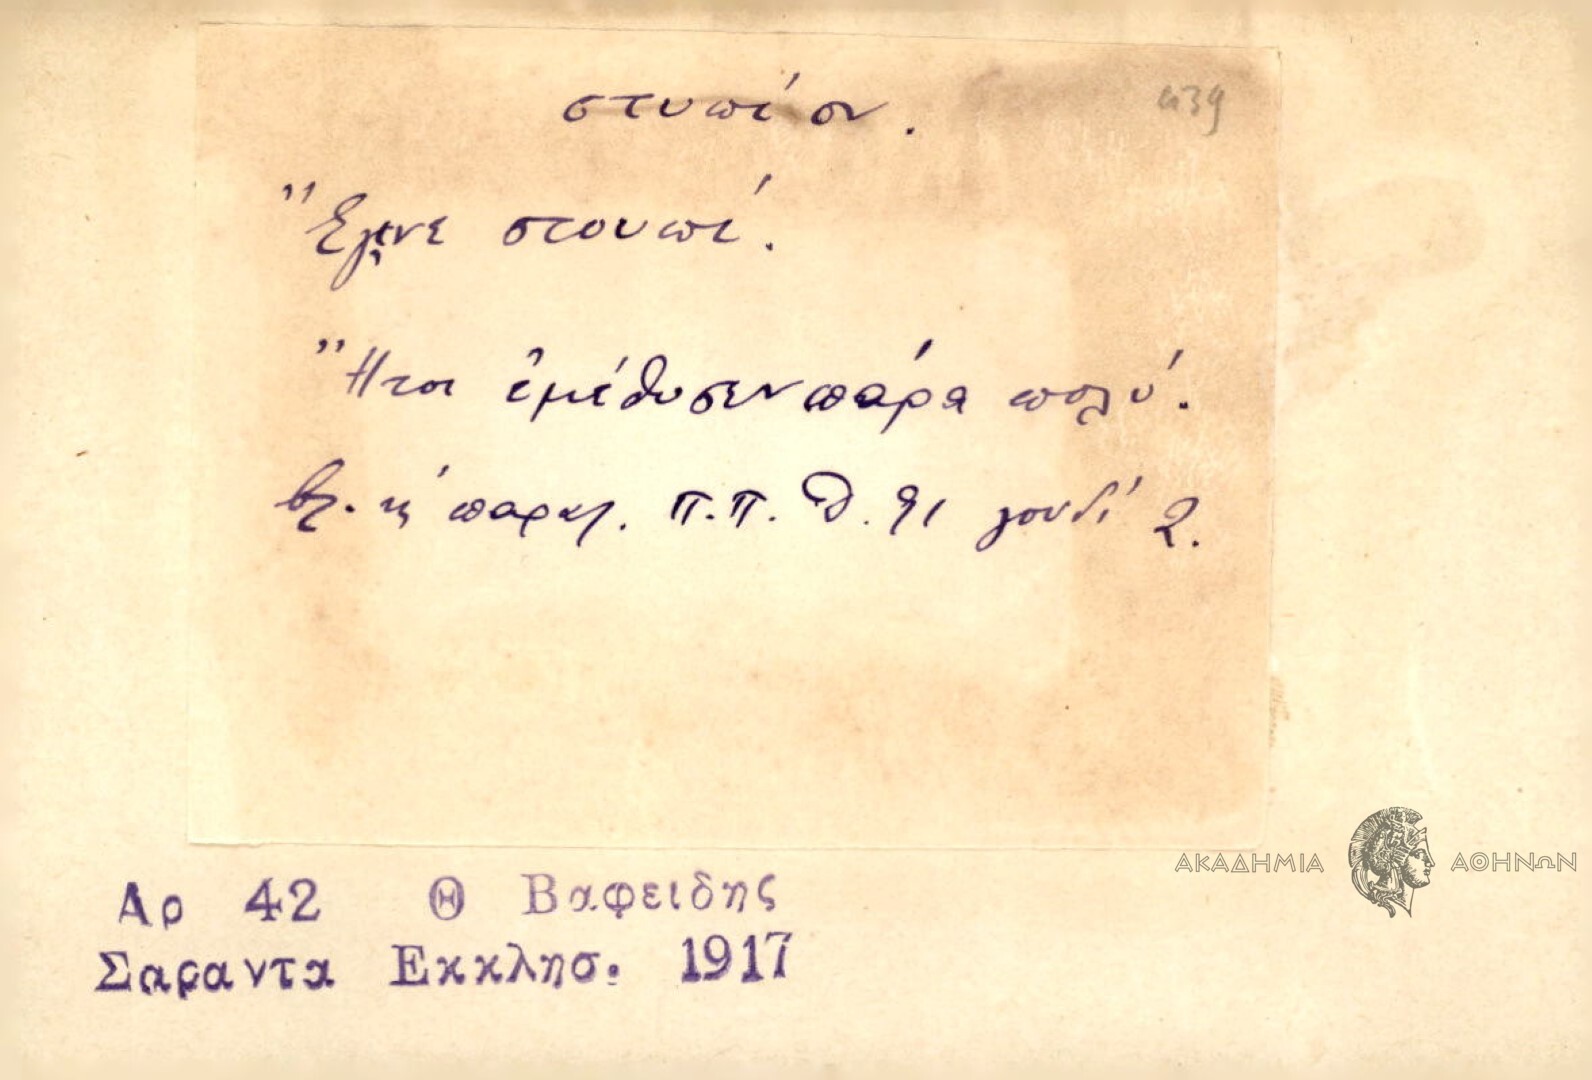 στυπίον.
439
Ἔγινε στουπί.
Ἤτοι ἐμέθυσεν πάρα πολύ.
βλ. κ παρκλ. Π.Π. Θ. 91 γουδί 2.
ΑΚΑΔΗΜΙΑ ΑΘΗΝΩΝ
Αρ 42 Θ Βαφειδης
Σαραντα Εκκλησ. 1917